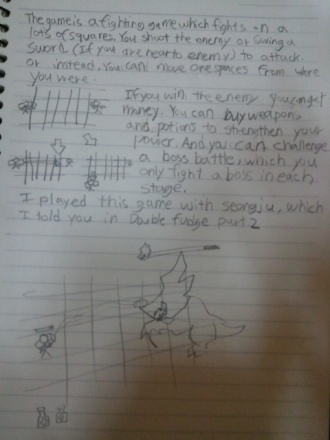 The game is a fighting game which fights on a
lots of squares. You shoot the enemy or swing a
sword (If you are near to enemy) to attack.
or instead, you can move one spaces from where
you were.
If you win the enemy you can get
money. You can buy weapons
and potions to strengthen your
power. And you can challenge
a boss battle, which you
only fight a boss in each
stage.
I played this game with seongju, which
I told you in Double fudge part 2